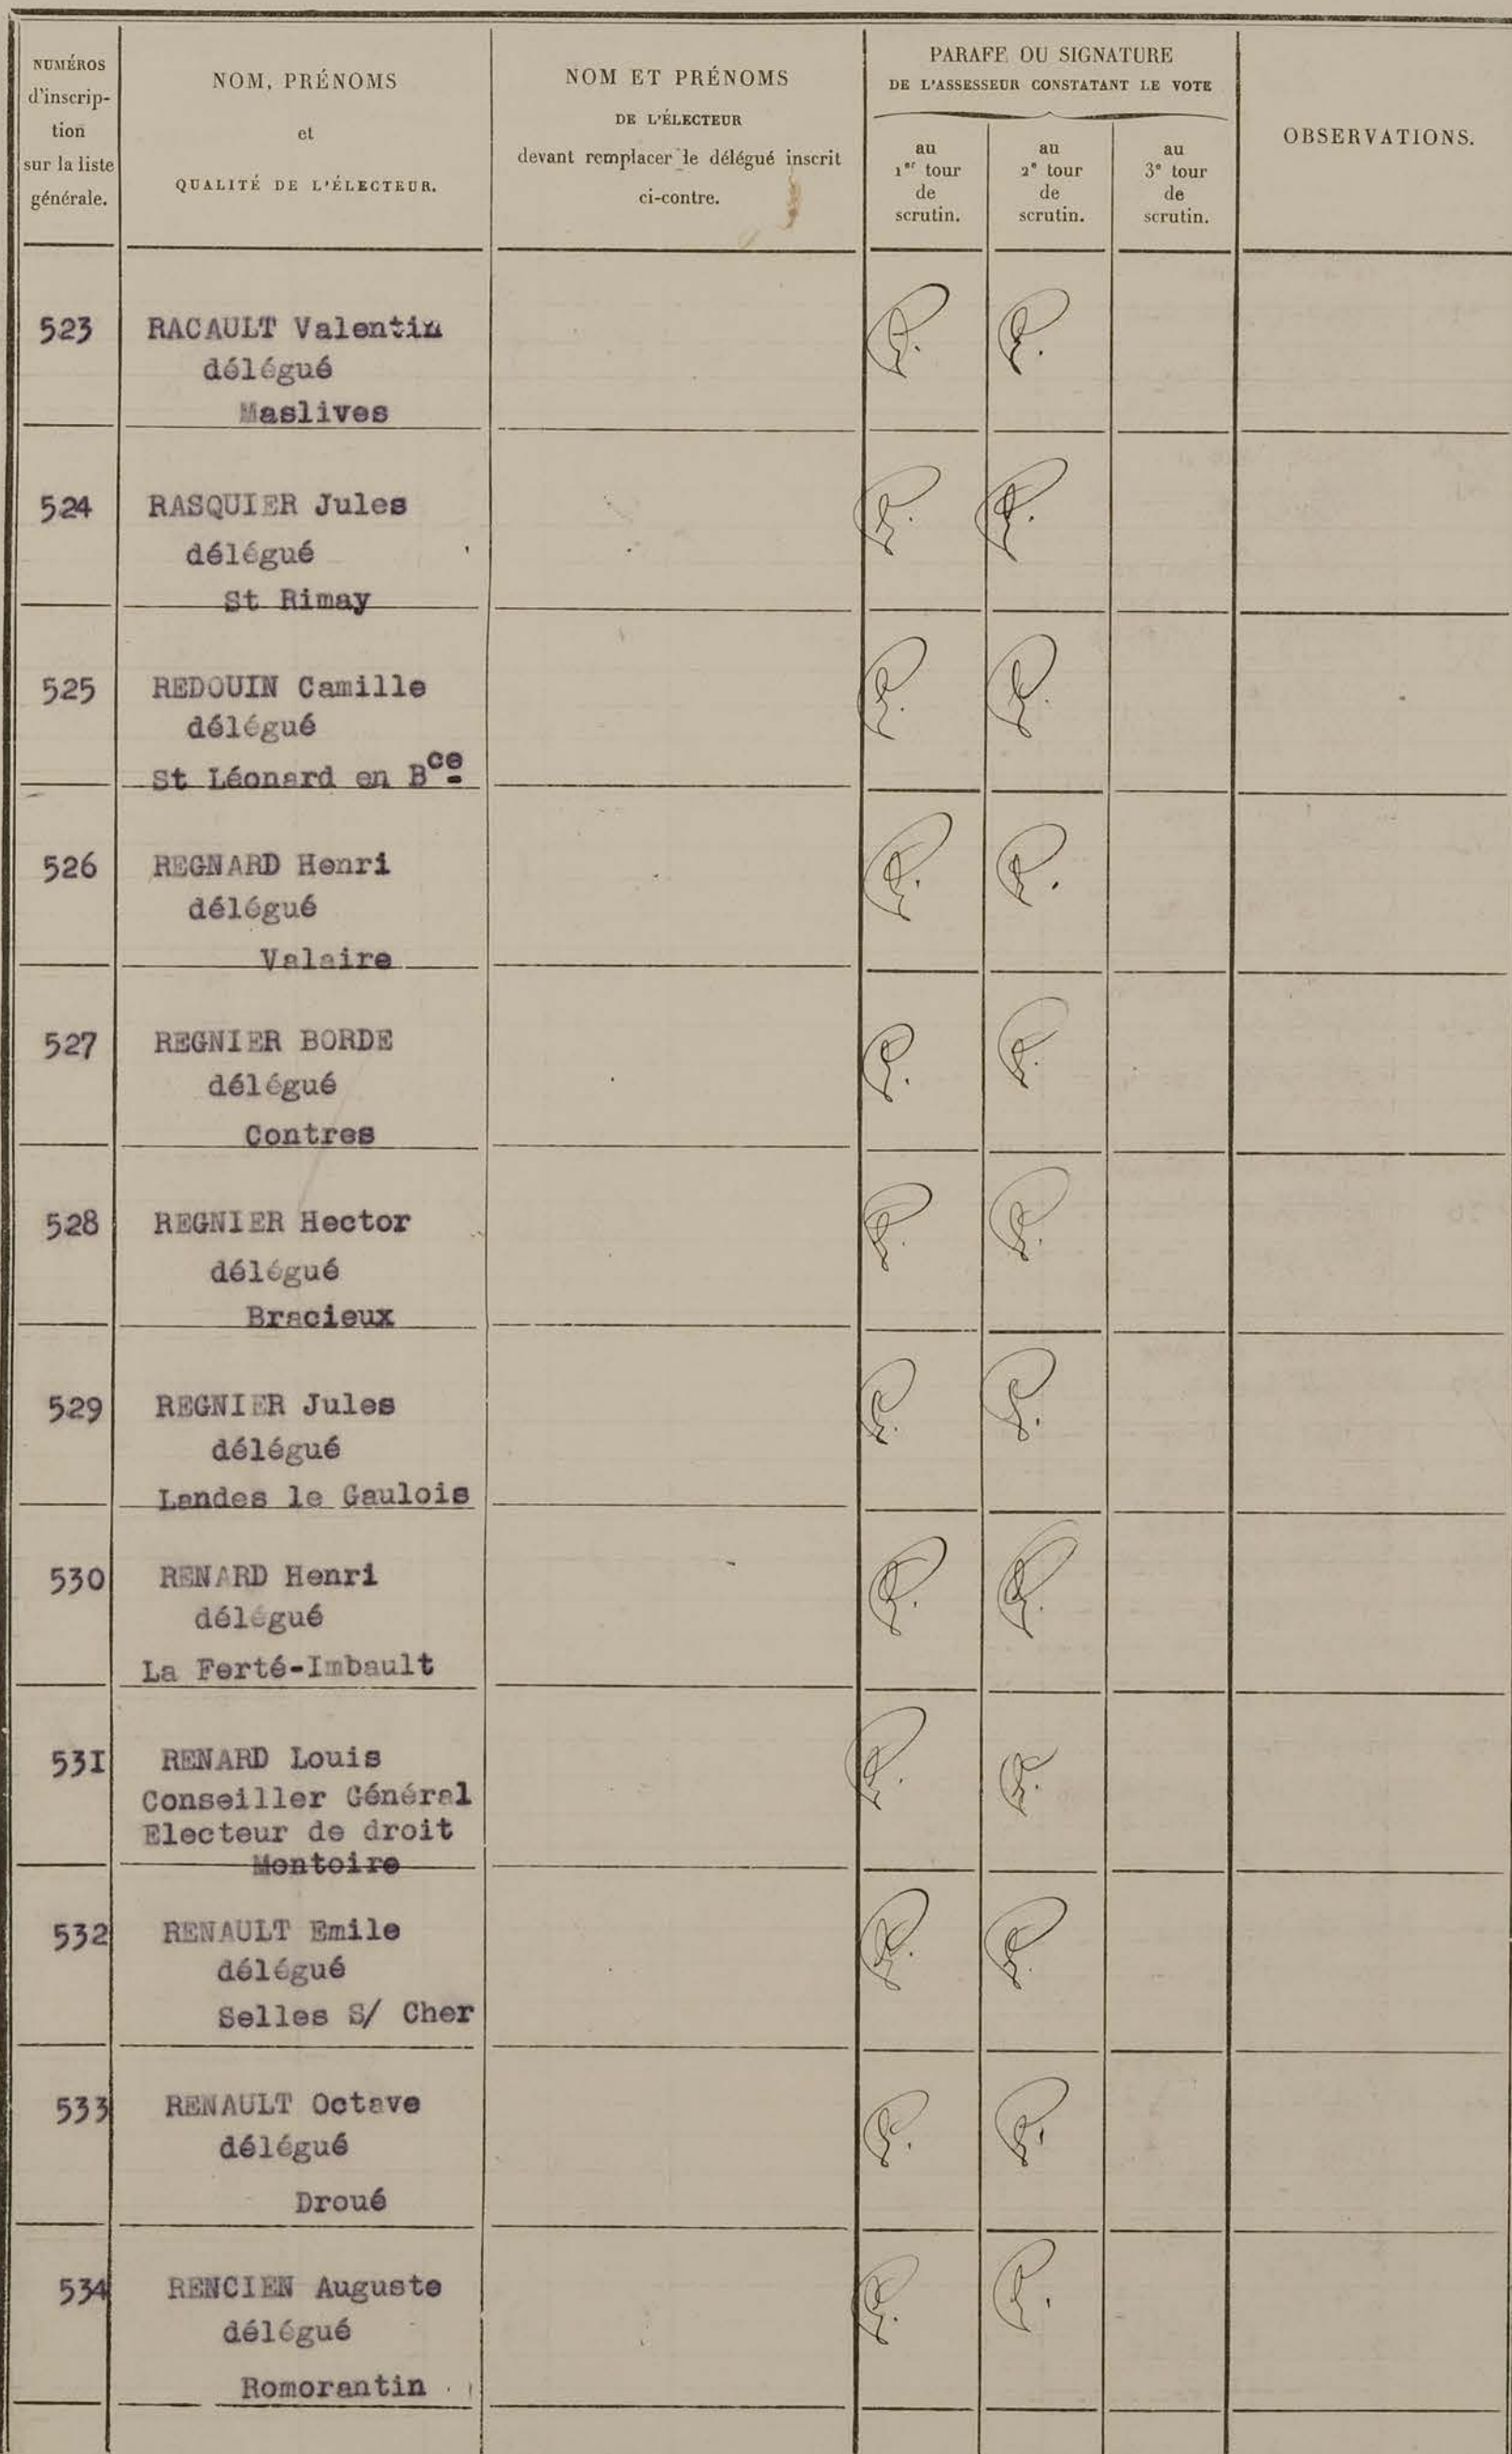 NUMÉROS
d'inscrip-
tion
sur la liste
générale.
NOM, PRÉNOMS
et
QUALITÉ DE L'ÉLECTEUR.
NOM ET PRÉNOMS
DE L'ÉLECTEUR
devant remplacer le délégué inscrit
ci-contre.
PARAFE OU SIGNATURE
DE L'ASSESSEUR CONSTATANT LE VOTE
au
1er tour
de
scrutin.
au
2e tour
de
scrutin.
au
3e tour
de
scrutin.
OBSERVATIONS.
523 RACAULT Valentin
délégué
Maslives
524 RASQUIER Jules
délégué
St Rimay
525 REDOUIN Camille
délégué
St Léonard en Bce
526 REGNARD Henri
délégué
Valaire
527 REGNIER BORDE
délégué
Contres
528 REGNIER Hector
délégué
Bracieux
529 REGNIER Jules
délégué
Landes le Gaulois
530 RENARD Henri
délégué
La Ferté-Imbault
531 RENARD Louis
Conseiller Général
Electeur de droit
Montoire
532 RENAULT Emile
délégué
Selles S/ Cher
533 RENAULT Octave
délégué
Droué
534 RENCIEN Auguste
délégué
Romorantin